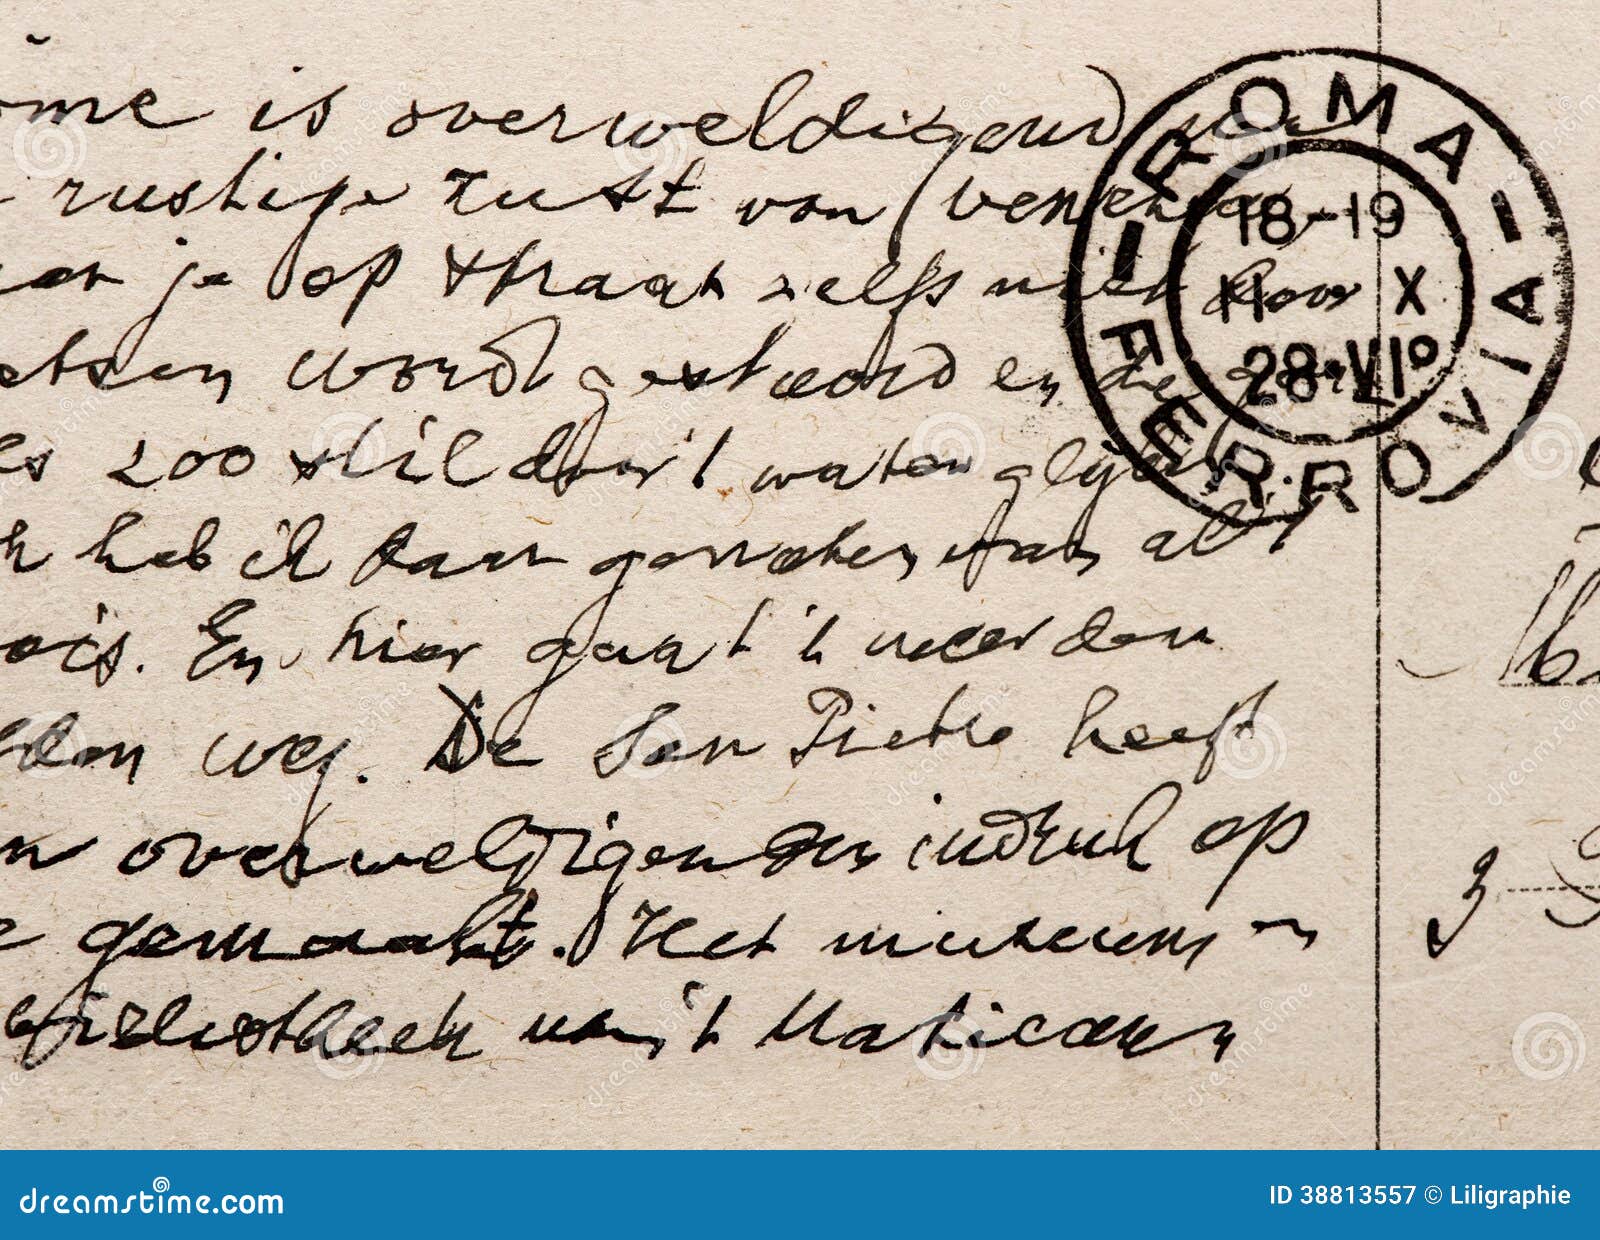 ome is overweldigend na
rustige rust van Venetië
aar je op straat zelfs niet door
etsen wordt gestoord en de gon
es zoo stil door 't water glijden
k heb ik daar genoten van al 't
ois. En hier gaat 't weer dom
den weg. De San Pietro heeft
n overweldigenden indruk op
e gemaakt. Het museum en
bibliotheek van 't Vaticaan
ROMA
FERROVIA
18-19
11 X
28·VIº
3
dreamstime.com
ID 38813557 © Liligraphie